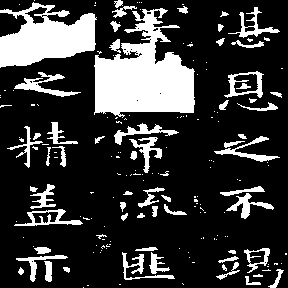 湛恩之不竭
澤常流匪
之精盖亦